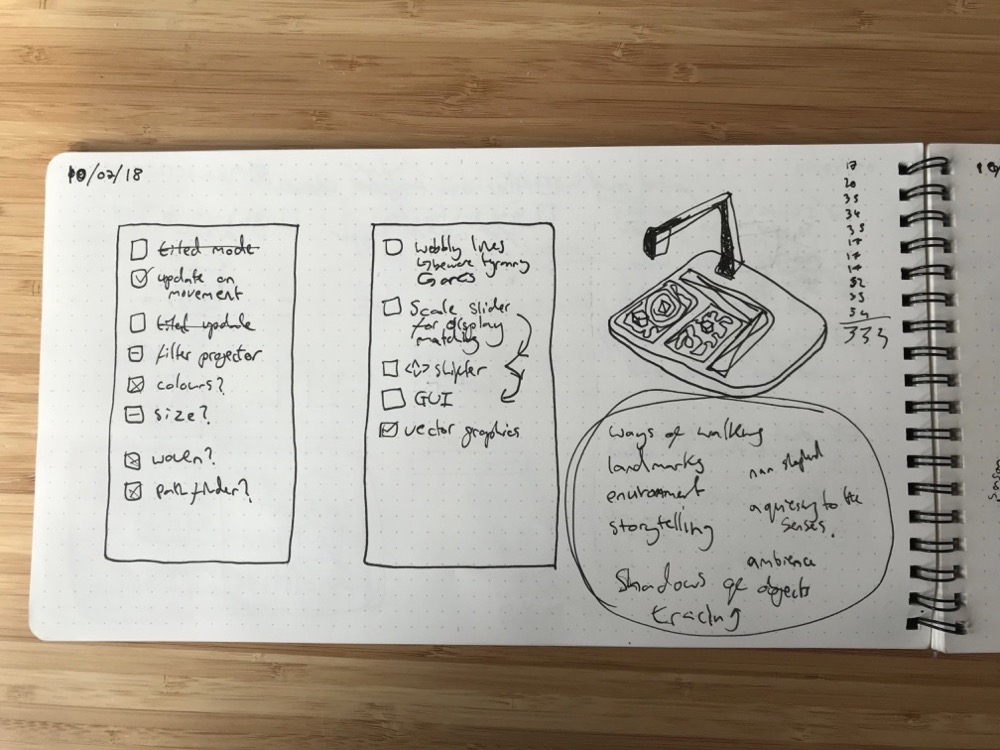 10/02/18
tilted mode
update on
movement
tilted update
filter projector
colours?
size?
woven?
path finder?
wobbly lines
beware tyranny
Scale slider
for display
matching
<□> shifter
GUI
vector graphics
17
20
35
34
35
17
17
17
52
35
54
333
ways of walking
landmarks
environment
storytelling
nan shepherd
senses.
ambience
Shadows of objects
tracing